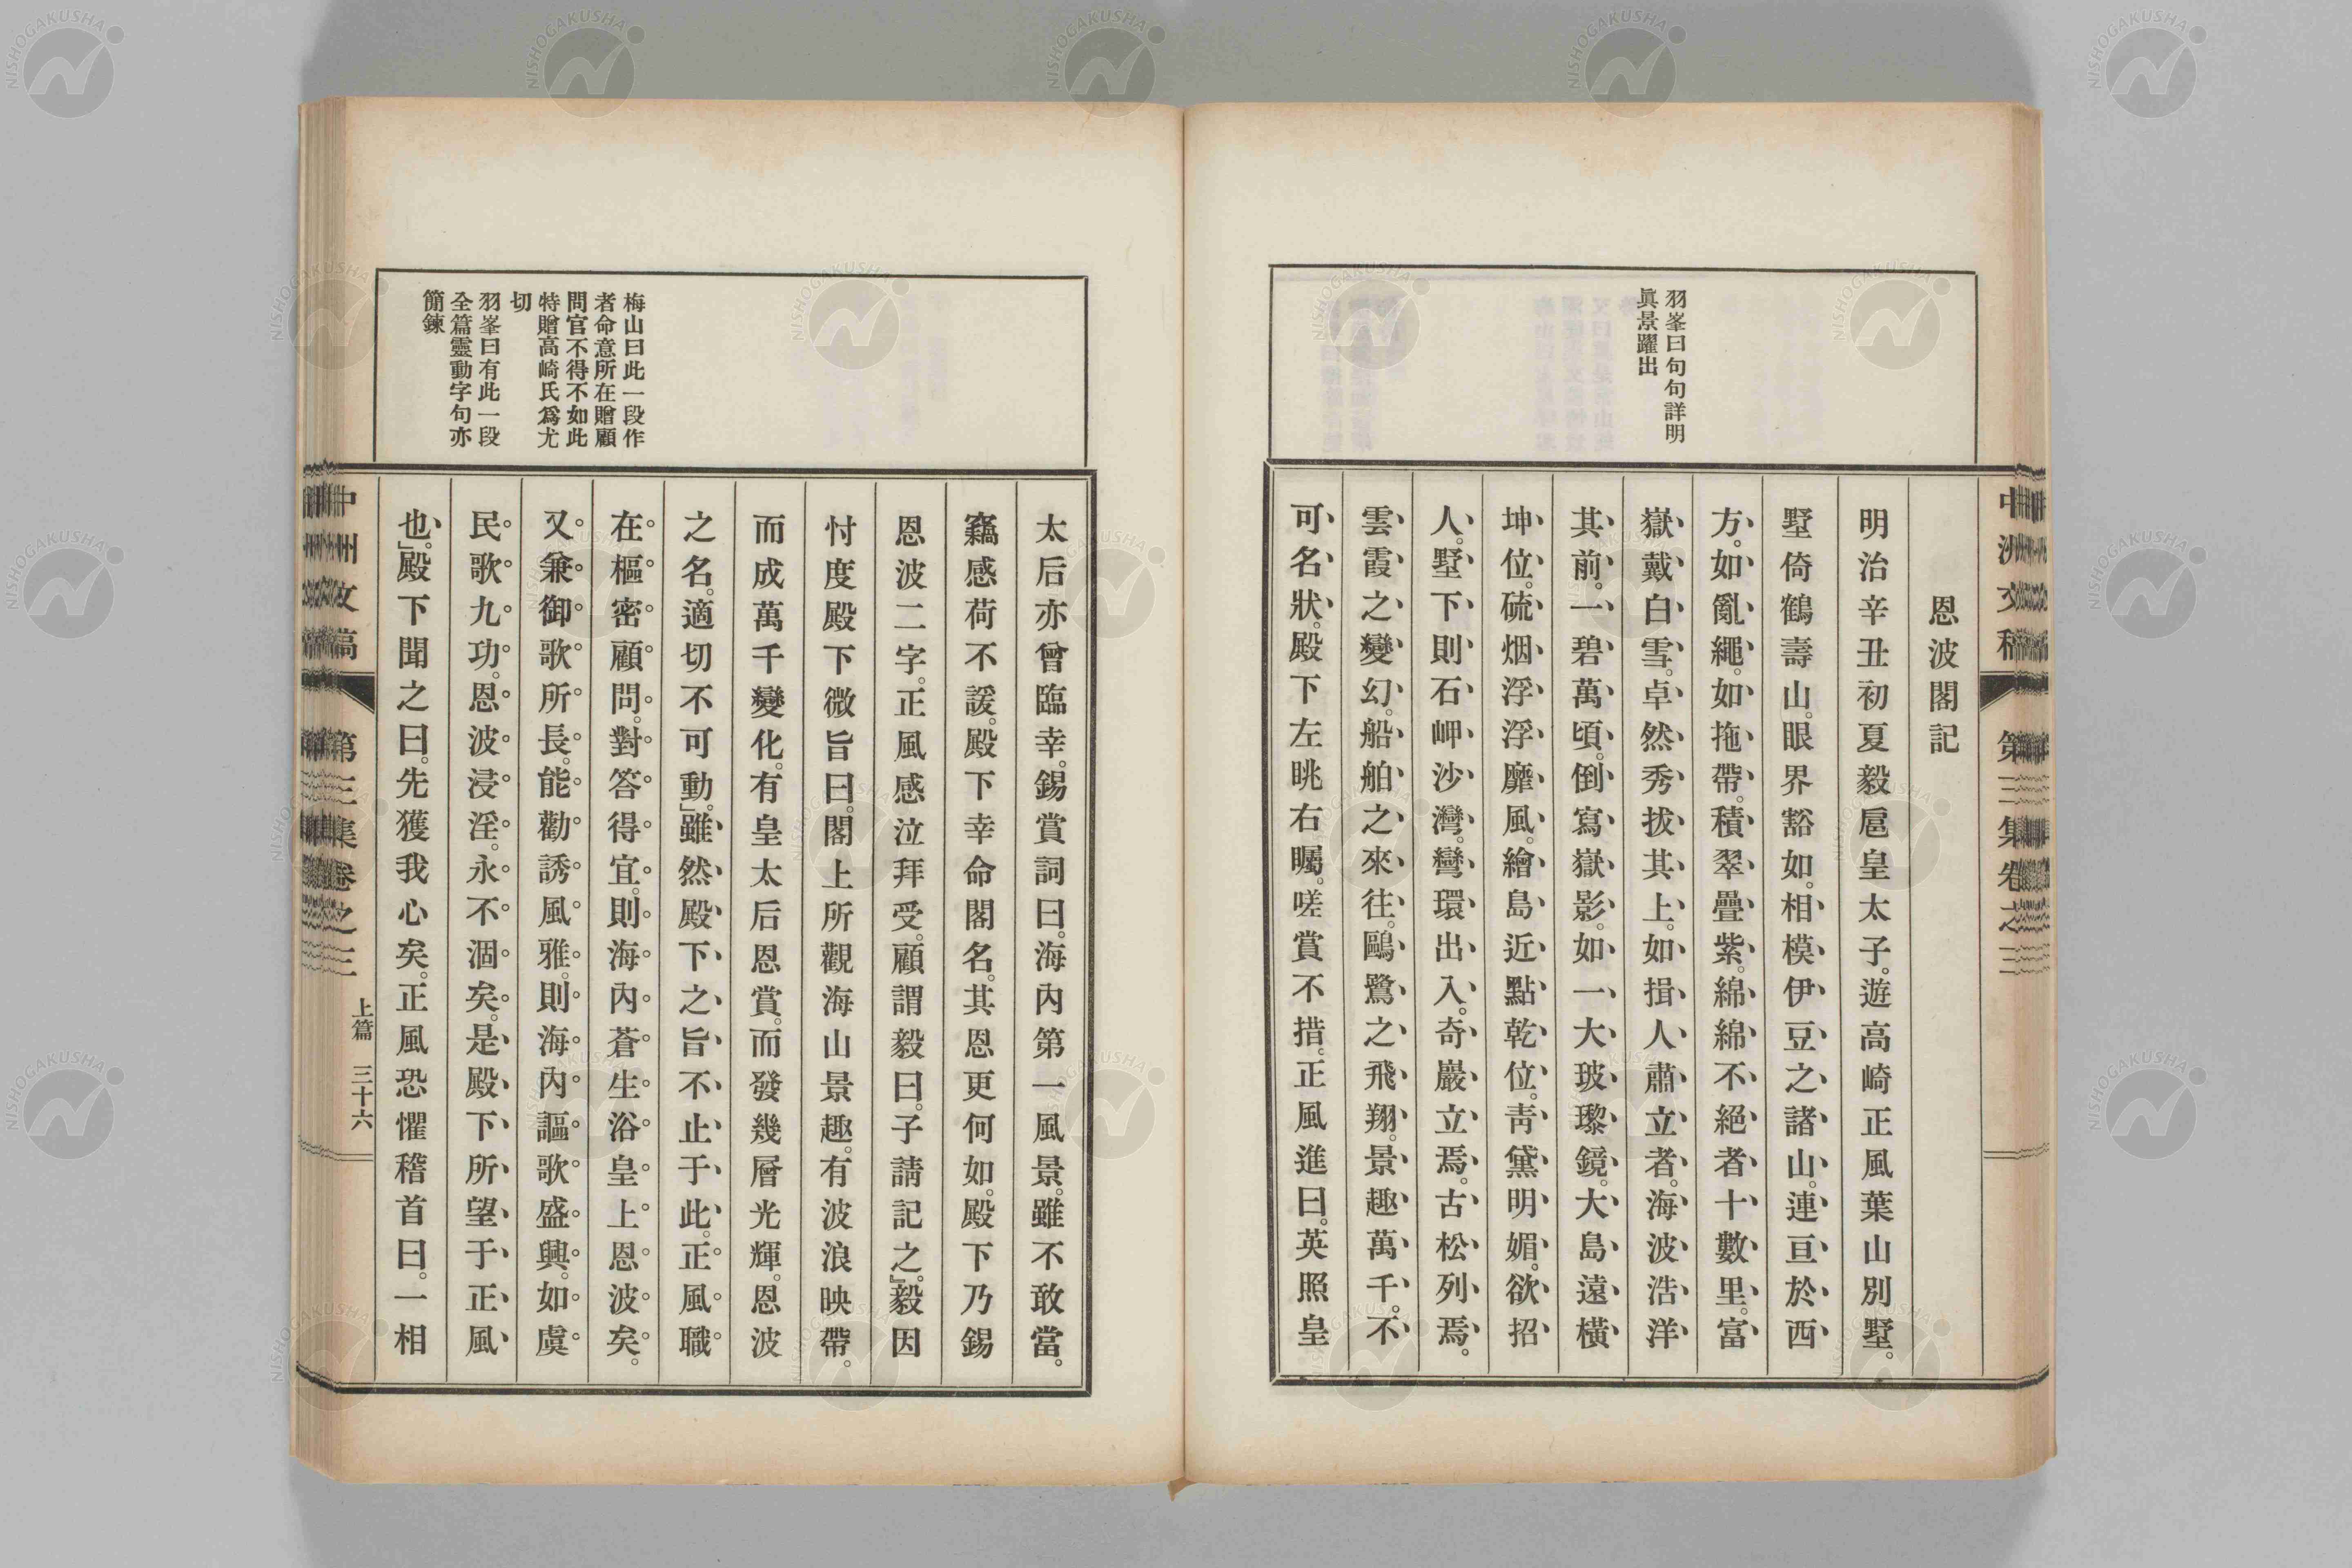 恩波閣記
明治辛丑初夏毅扈皇太子。遊高崎正風葉山別墅。
墅倚鶴壽山。眼界豁如。相模伊豆之諸山。連亘於西
方。如亂繩。如拖帶。積翠疊紫。綿綿不絕者十數里。富
嶽戴白雪。卓然秀拔其上。如揖人肅立者。海波浩洋
其前。一碧萬頃。倒寫嶽影。如一大玻瓈鏡。大島遠橫
坤位。硫烟浮浮靡風。繪島近點乾位。靑黛明媚。欲招
人。墅下則石岬沙灣。彎環出入。奇巖立焉。古松列焉。
雲霞之變幻。船舶之來往。鷗鷺之飛翔。景趣萬千。不
可名狀。殿下左眺右矚。嗟賞不措。正風進曰。英照皇
羽峯曰句句詳明
眞景躍出
中洲文稿 第三集卷之三
太后亦曾臨幸。錫賞詞曰。海內第一風景。雖不敢當。
竊感荷不諼。殿下幸命閣名。其恩更何如。殿下乃錫
恩波二字。正風感泣拜受。顧謂毅曰。子請記之。』毅因
忖度殿下微旨曰。閣上所觀海山景趣。有波浪映帶。
而成萬千變化。有皇太后恩賞。而發幾層光輝。恩波
之名。適切不可動。』雖然殿下之旨不止于此。正風職
在樞密顧問。對答得宜。則海內蒼生浴皇上恩波矣。
又兼御歌所長。能勸誘風雅。則海內謳歌盛興。如虞
民歌九功。恩波浸淫。永不涸矣。是殿下所望于正風
也。』殿下聞之曰。先獲我心矣。正風恐懼稽首曰。一相
梅山曰此一段作
者命意所在贈顧
問官不得不如此
特贈高崎氏爲尤
切
羽峯曰有此一段
全篇靈動字句亦
簡鍊
中州文稿 第三集卷之三 上篇 三十六